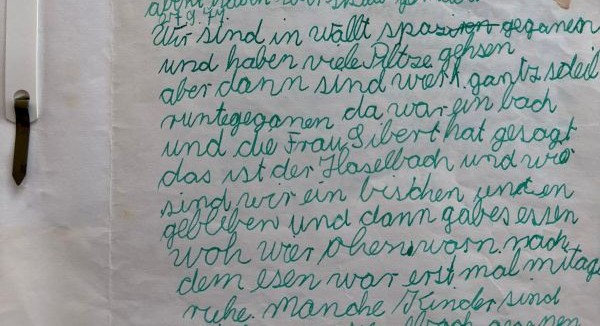 27.9.79.
Wir sind in wallt spaziren geganen
und haben viele Piltze gehsen
aber dann sind wir gantz steil
runtegeganen da war ein bach
und die Frau Sibert hat gesagt
das ist der Haselbach und wir
sind wir ein bischen unten
gebliben und dann gab es essen
woh wir ohen warn. nach
dem esen war erst mal mitag
ruhe. Manche Kinder sind